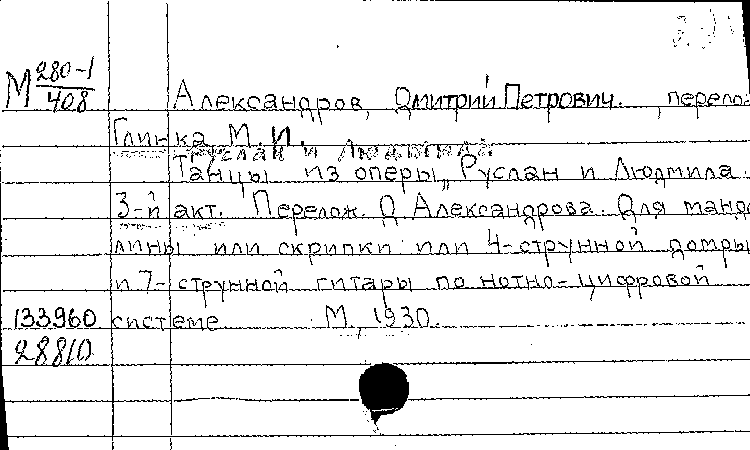 М 280-1/408
Александров, Дмитрий Петрович., перелож
Глинка М. И.
Руслан и Людмила
Танцы из оперы „Руслан и Людмила.
3-й акт. Перелож. Д. Александрова. Для мандо
лины или скрипки или 4-струнной домры
и 7-струнной гитары по нотно-цифровой
133960 системе М., 1930.
28810